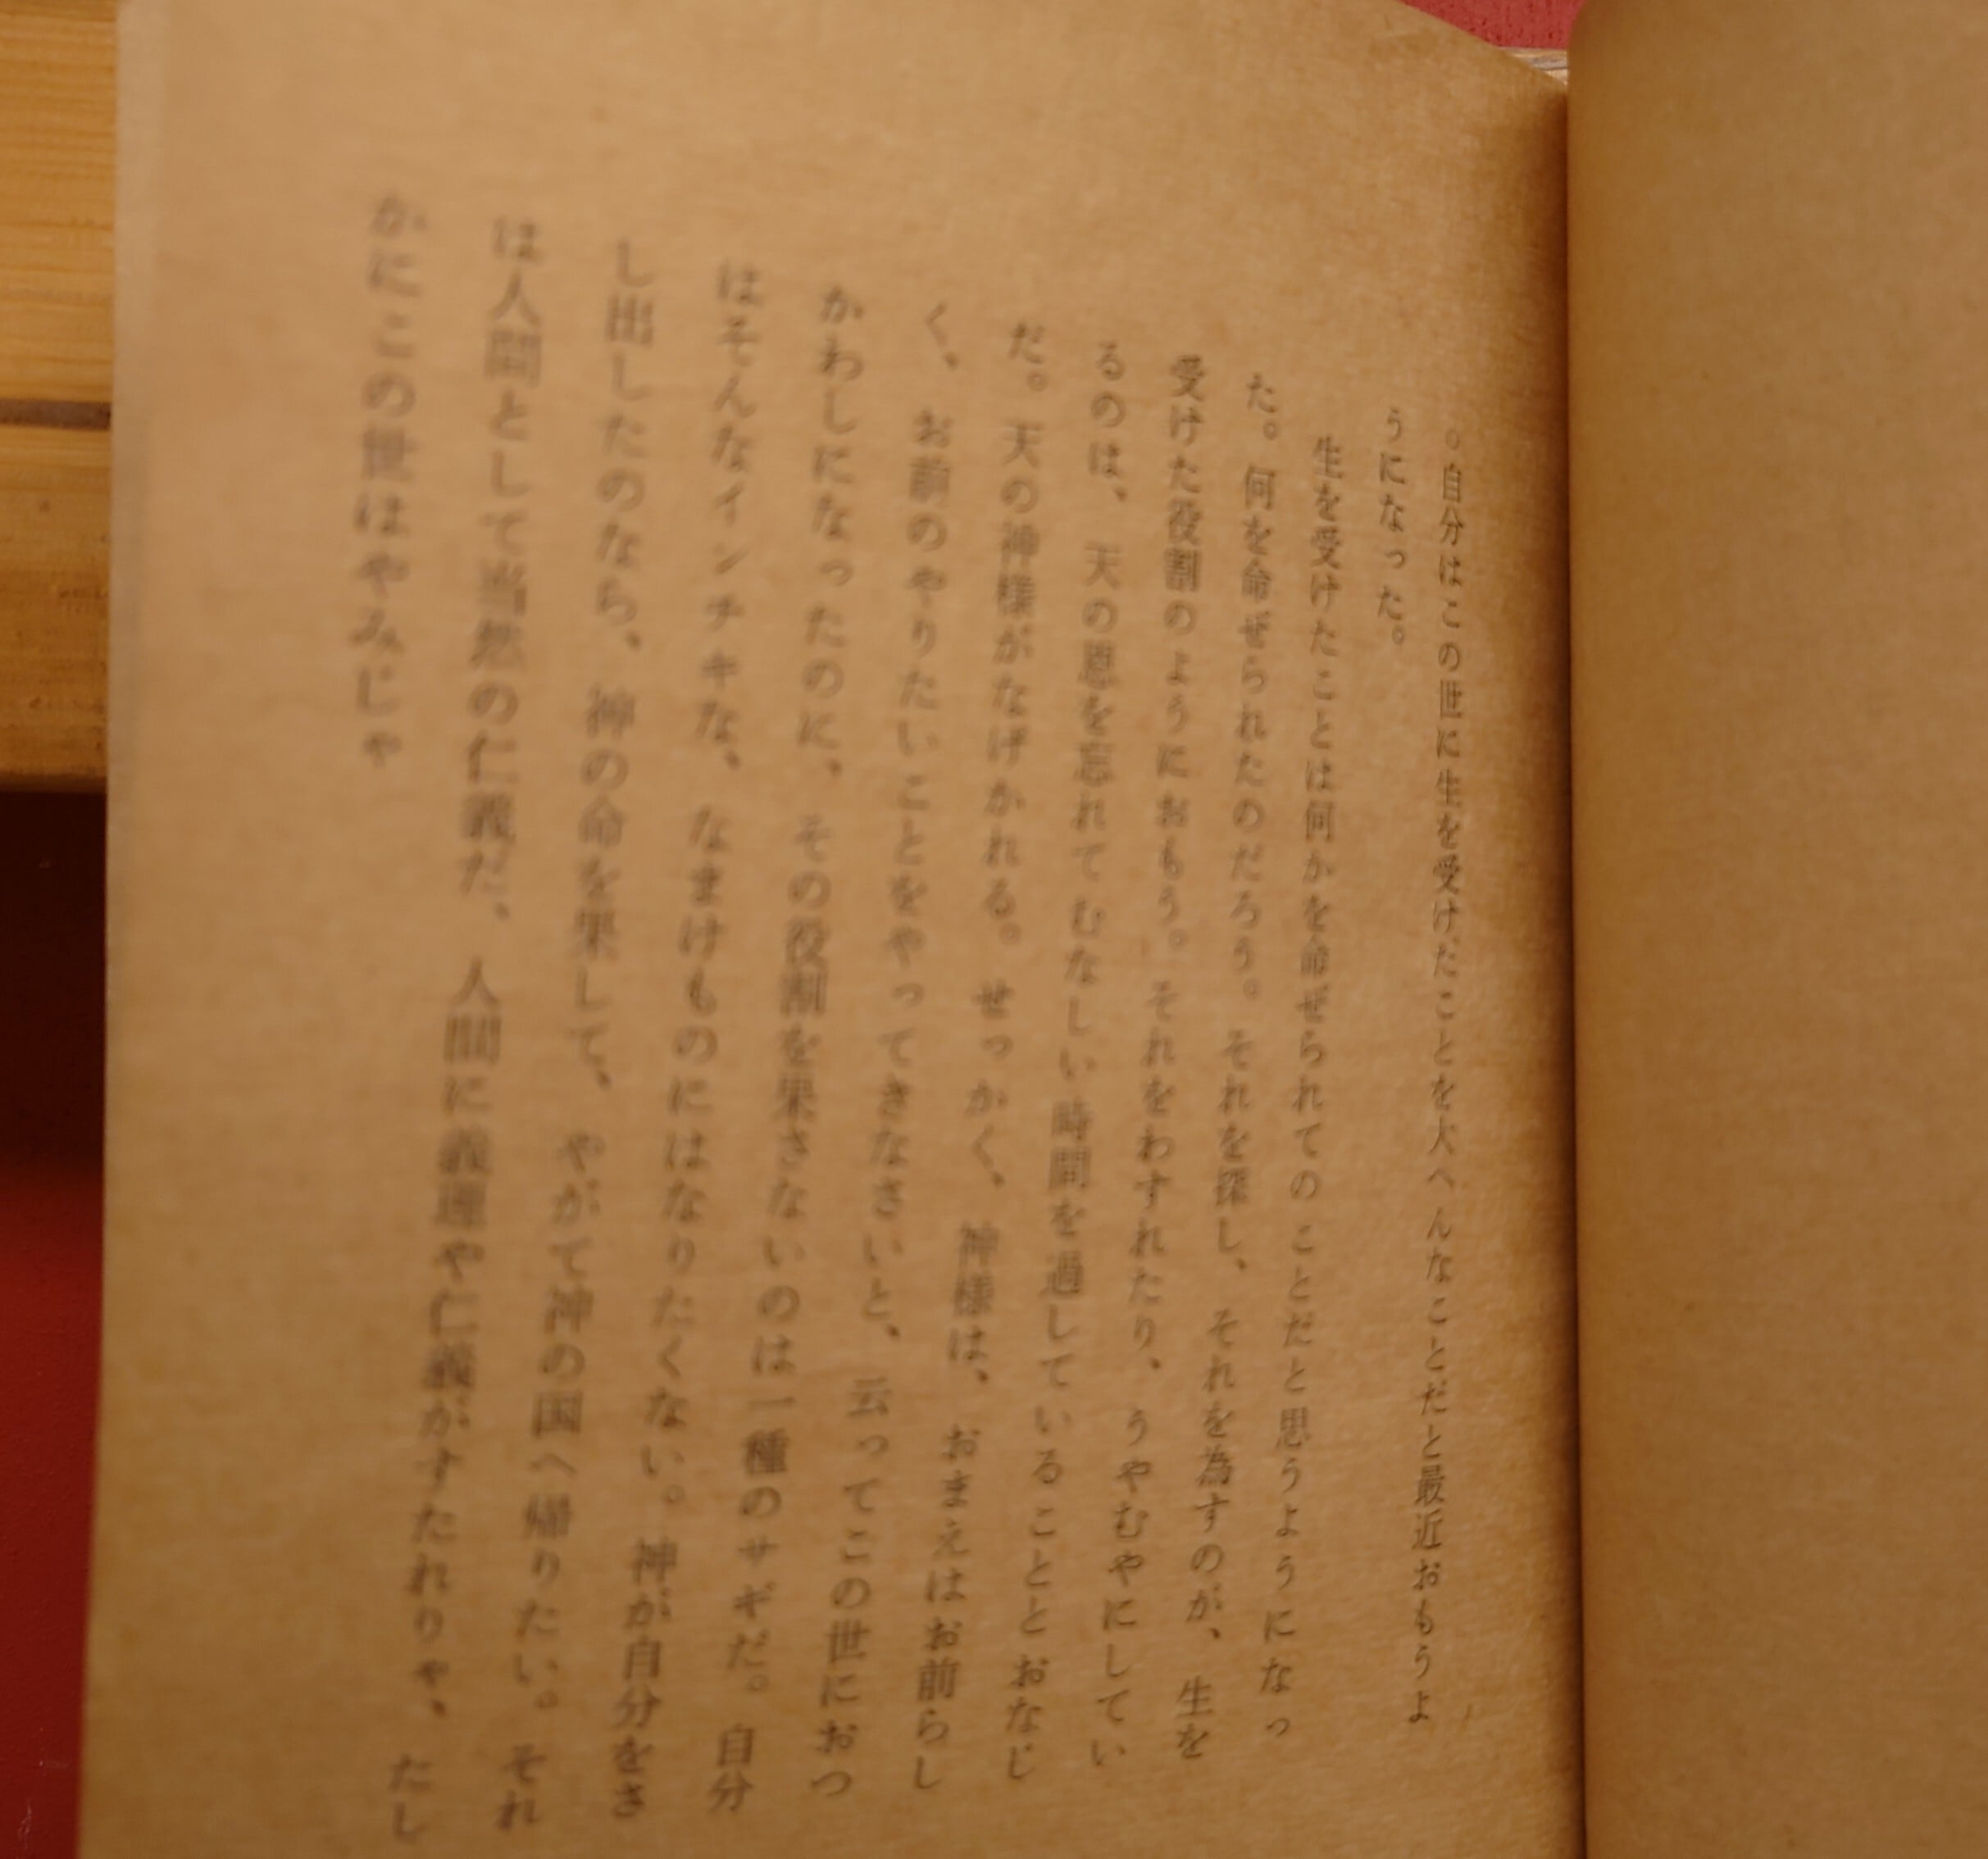 ○自分はこの世に生を受けたことを大へんなことだと最近おもうよ
うになった。
生を受けたことは何かを命ぜられてのことだと思うようになっ
た。何を命ぜられたのだろう。それを探し、それを為すのが、生を
受けた役割のようにおもう。それをわすれたり、うやむやにしてい
るのは、天の恩を忘れてむなしい時間を過していることとおなじ
だ。天の神様がなげかれる。せっかく、神様は、おまえはお前らし
く、お前のやりたいことをやってきなさいと、云ってこの世におつ
かわしになったのに、その役割を果さないのは一種のサギだ。自分
はそんなインチキな、なまけものにはなりたくない。神が自分をさ
し出したのなら、神の命を果して、やがて神の国へ帰りたい。それ
は人間として当然の仁義だ、人間に義理や仁義がすたれりゃ、たし
かにこの世はやみじゃ